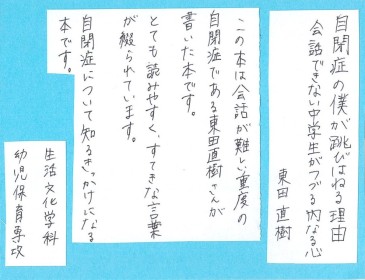 自閉症の僕が跳びはねる理由
会話できない中学生がつづる内なる心
東田 直樹
この本は会話が難しい重度の
自閉症である東田直樹さんが
書いた本です。
とても読みやすく、すてきな言葉
が綴られています。
自閉症について知るきっかけになる
本です。
生活文化学科
幼児保育専攻